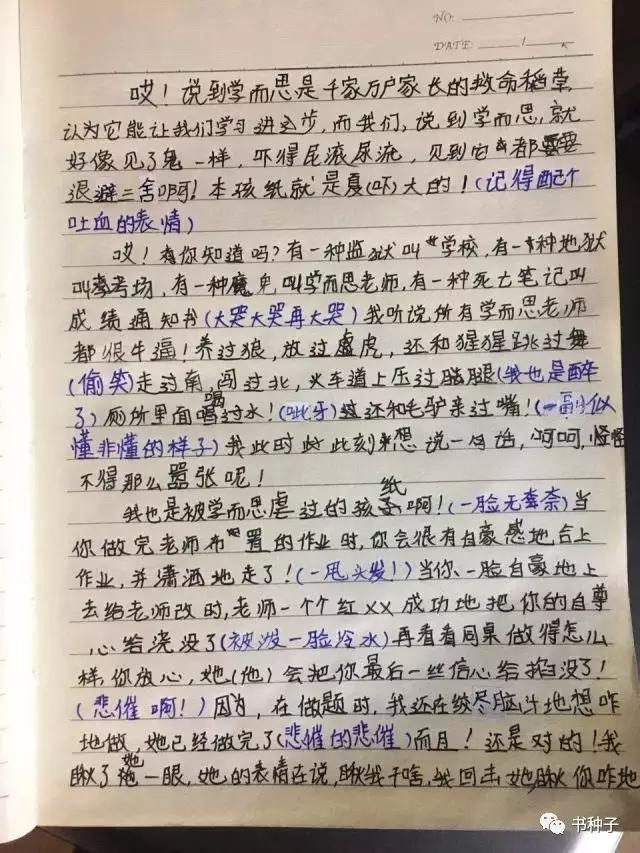 NO:
DATE:
哎！说到学而思是千家万户家长的救命稻草，
认为它能让我们学习进步，而我们，说到学而思，就
好像见了鬼一样，吓得屁滚尿流，见到它都要
退避三舍啊！本孩纸就是夏(吓)大的！(记得配个
吐血的表情)
哎！你知道吗？有一种监狱叫学校，有一种地狱
叫考场，有一种魔鬼叫学而思老师，有一种死亡笔记叫
成绩通知书(大哭大哭再大哭)我听说所有学而思老师
都很牛逼！养过狼，放过虎，还和猩猩跳过舞
(偷笑)走过南，闯过北，火车道上压过腿(我也是醉
了)厕所里面喝过水！(呲牙)还和毛驴亲过嘴！(一副似
懂非懂的样子)我此时此刻想说一句话，呵呵，怪
不得那么嚣张呢！
我也是被学而思虐过的孩纸啊！(一脸无奈)当
你做完老师布置的作业时，你会很有自豪感地合上
作业，并潇洒地走了！(一甩头发！)当你一脸自豪地上
去给老师改时，老师一个个红××成功地把你的自尊
心给浇没了(被泼一脸冷水)再看看同桌做得怎么
样，你放心，她(他)会把你最后一丝信心给掐没了！
(悲催啊！)因为，在做题时，我还在绞尽脑汁地想咋
地做，她已经做完了(悲催的悲催)而且！还是对的！我
瞅了她一眼，她的表情在说，瞅我干啥，我回去她，瞅你咋地
书种子